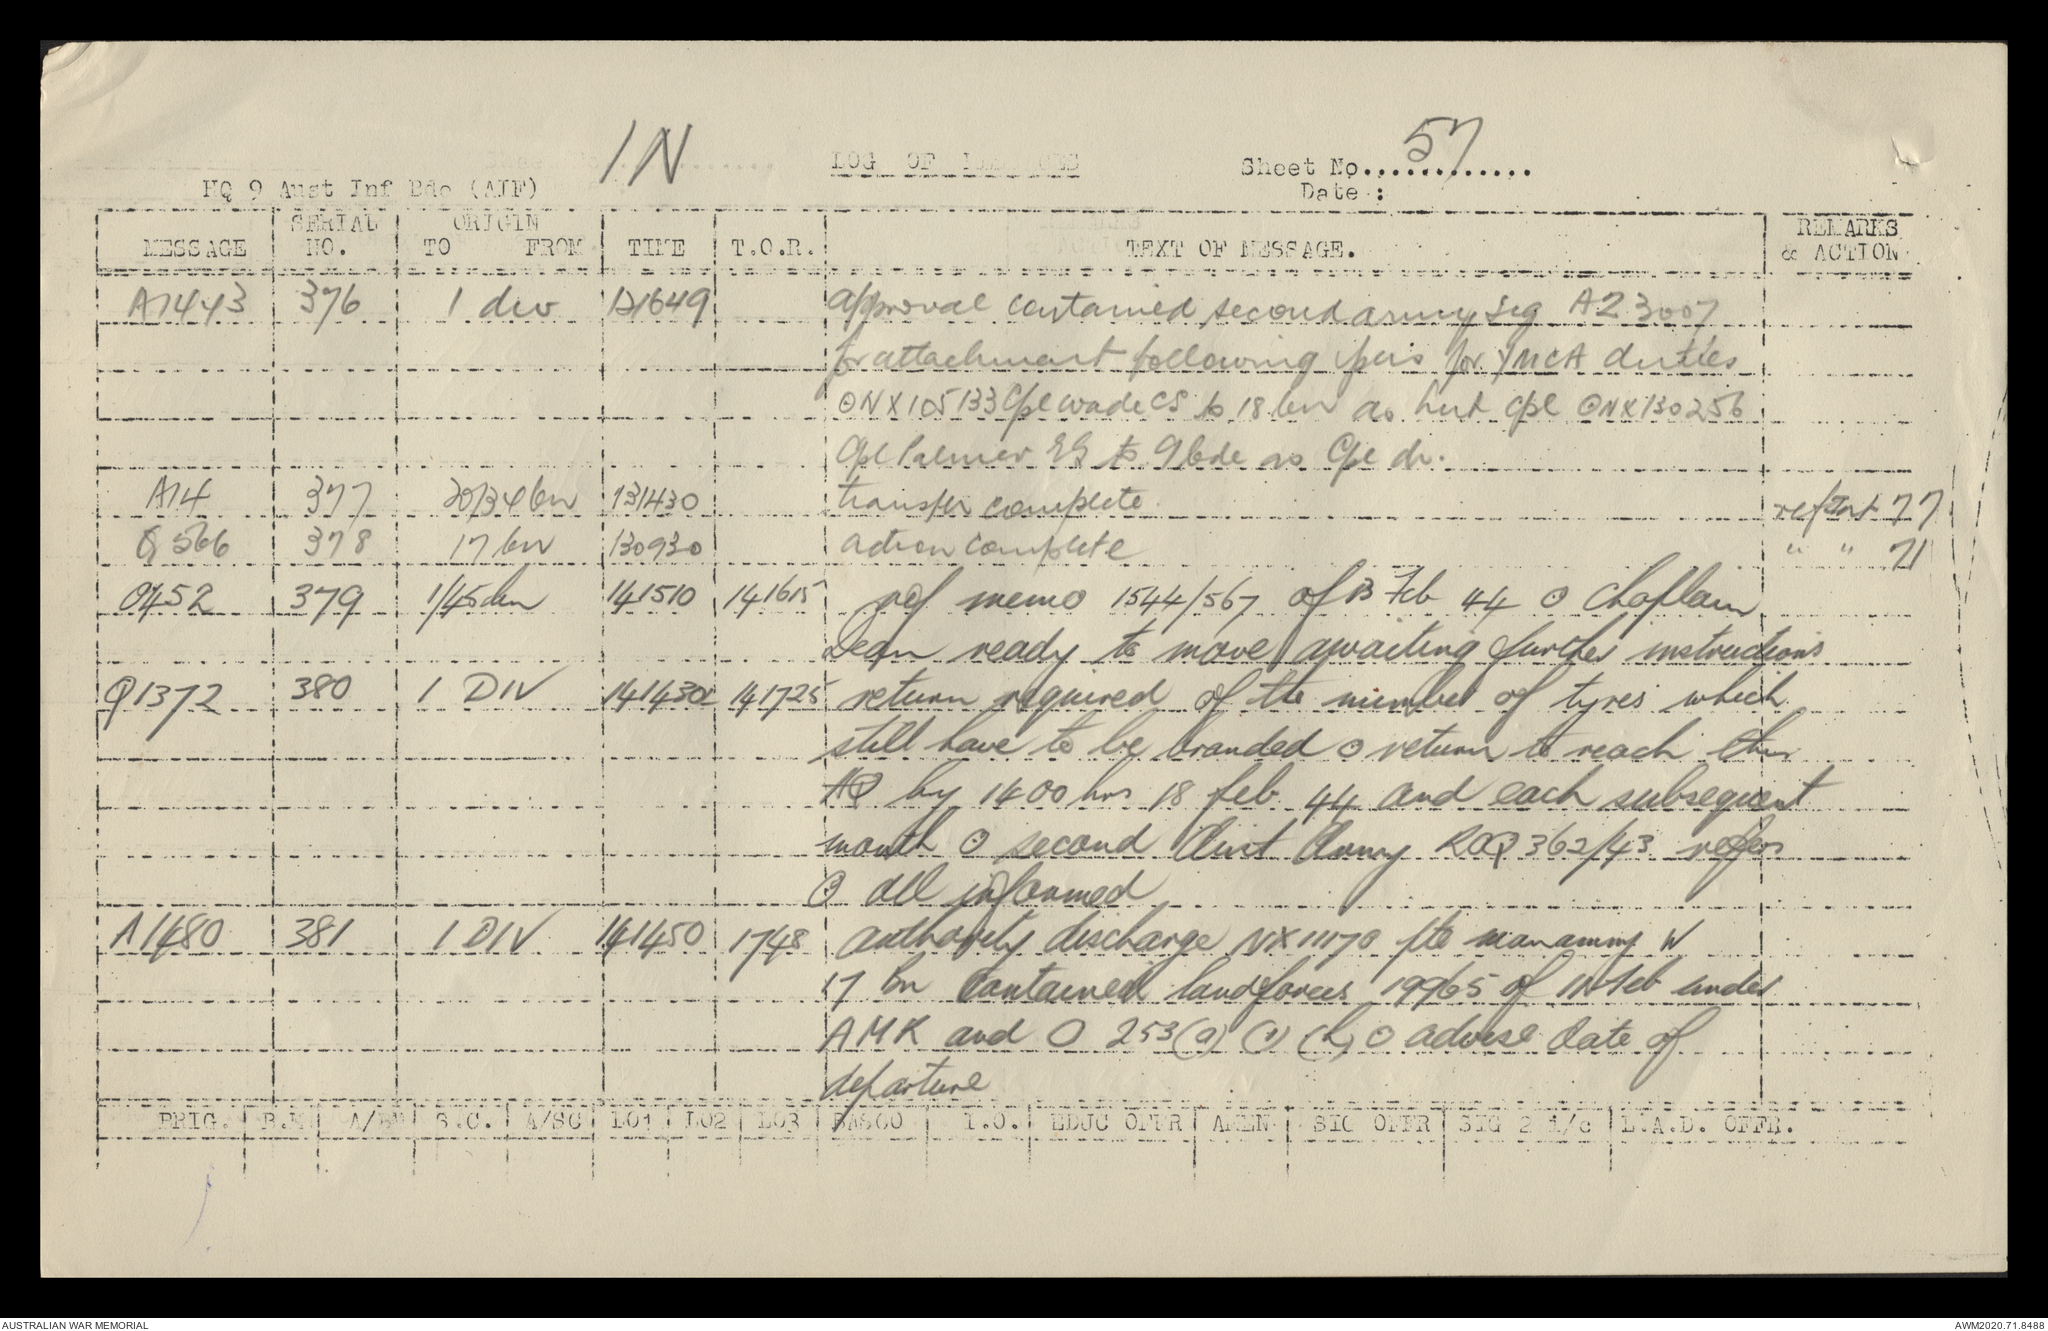 IN
LOG OF MESSAGES
Sheet No.............57
HQ 9 Aust Inf Bde (AIF)
Date :
MESSAGE SERIAL NO. ORIGIN TO FROM TIME T.O.R. TEXT OF MESSAGE. REMARKS & ACTION
A1443 376 1 div 121649 approval contained second army sig A23007
for attachment following pers for YMCA duties
⊙ NX105133 Cpl Wade CS to 18 bn as hut cpl ⊙ NX130256
Cpl Palmer to 9 bde as Cpl dr.
A14 377 20/34 bn 131430 transfer complete ref 77
Q566 378 17 bn 130930 action complete " " 71
O452 379 1/45 bn 141510 141615 ref memo 1544/567 of 13 Feb 44 ⊙ Chaplain
Dean ready to move awaiting further instructions
Q1372 380 1 DIV 141430 141725 return required of the number of tyres which
still have to be branded ⊙ return to reach this
HQ by 1400 hrs 18 feb 44 and each subsequent
month ⊙ second Aust Army 362/43 refers
⊙ all informed
A1480 381 1 DIV 141450 1748 authority discharge NX11170 pte W
17 bn contained landforces 19965 of Feb under
AMR and O 253(a) (1) (h) ⊙ advise date of
departure
BRIG. B.M A/BM S.C. A/SC LO1 LO2 LO3 BASCO I.O. EDUC OFFR AMEN SIG OFFR SIG 2 i/c L.A.D. OFFR.
AUSTRALIAN WAR MEMORIAL
AWM2020.71.8488